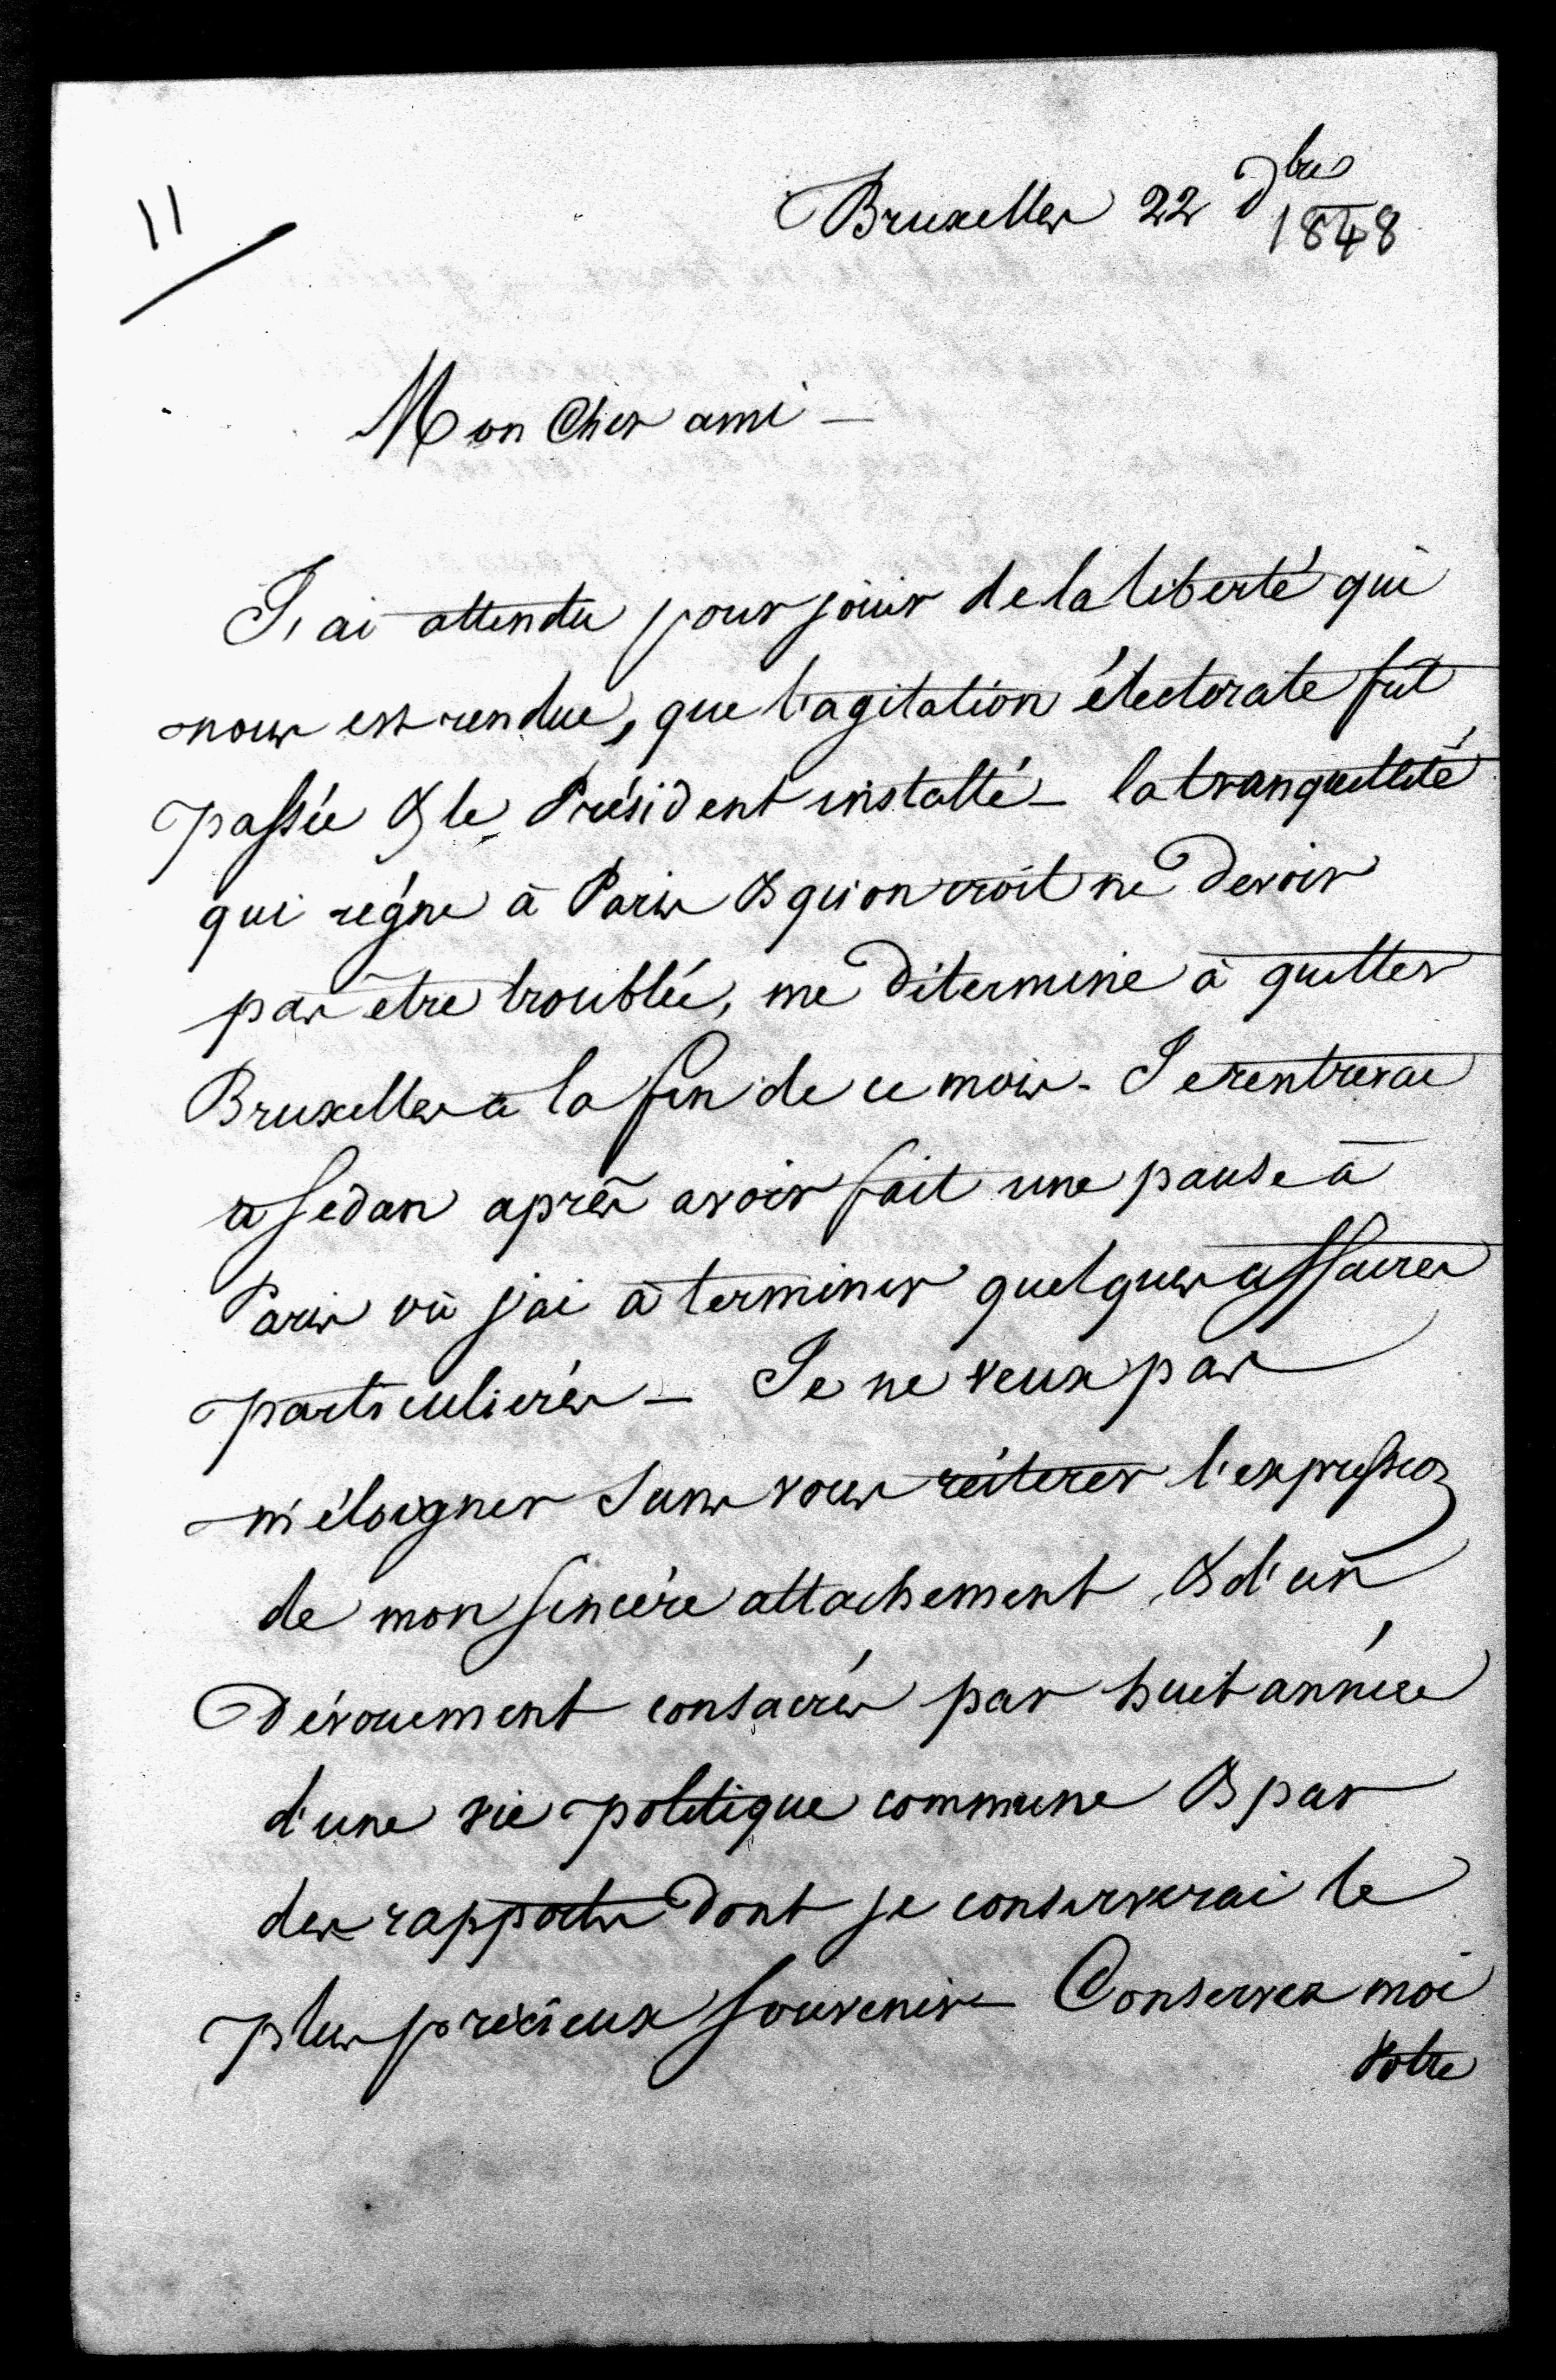 11
Bruxelles 22 Dbre
1848
Mon Cher ami –
J'ai attendu pour jouir de la liberté qui
nous est rendue, que l'agitation électorale fut
passée & le Président installé – la tranquillité
qui règne à Paris & qu'on croit ne devoir
pas être troublée, me détermine à quitter
Bruxelles à la fin de ce mois – Je rentrerai
à Sedan après avoir fait une pause à
Paris où j'ai à terminer quelques affaires
particulières – Je ne veux pas
m'éloigner sans vous réiterer l'expression
de mon sincère attachement & d'un
dévouement consacrés par huit années
d'une vie politique commune & par
des rapports dont je conserverai le
plus précieux souvenir – Conservez moi
votre